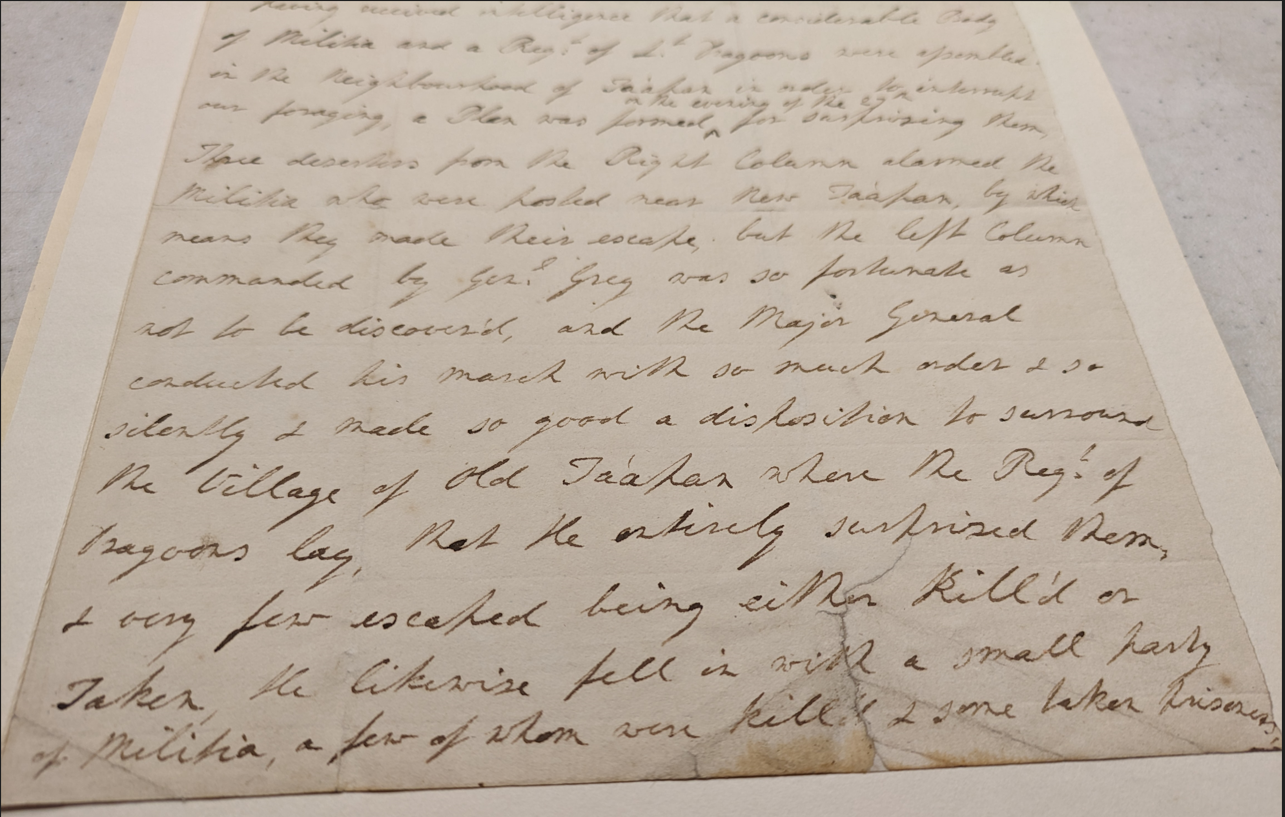 having received intelligence that a considerable Body
of Militia and a Regt. of Lt. Dragoons were assembled
in the Neighbourhood of Taápan in order to interrupt
on the evening of the 27th
our foraging, a Plan was formed ^ for surprizing them,
Three deserters from the Right Column alarmed the
Militia who were posted near New Taápan, by which
means they made their escape, but the left Column
commanded by Genl. Grey was so fortunate as
not to be discover'd, and the Major General
conducted his march with so much order & so
silently & made so good a disposition to surround
the Village of Old Taápan where the Regt. of
Dragoons lay, that He entirely surprized them,
& very few escaped being either Kill'd or
Taken, He likewise fell in with a small party
of Militia, a few of whom were kill'd & some taken prisoners,